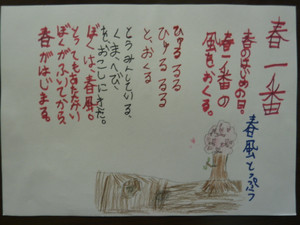 春一番
春風とっぷう
春のはじめの日。
春一番の
風をおくる。
ひゅるるる
ひゅるるる
と、おくる
とうみんしている、
くま、へび、
おこしにきた。
ぼくは、春風。
とってもあたたかい
ぼくがふいてから
春がはじまります。